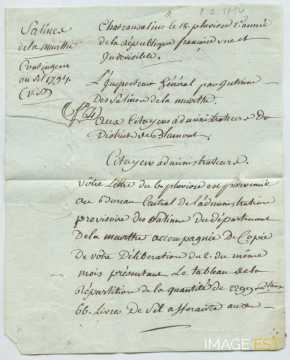 Salines
de la meurthe
Chateausalins le 18 pluviose l'année
de la République française une et
Indivisible.
L'Inspecteur Général par Interim
des Salines de la meurthe.
aux Citoyens administrateurs du
District de Blamont
Citoyens administrateurs.
Votre Lettre du 6 pluviose est parvenue
au Bureau Central de l'administration
provisoire des Salines du département
De la meurthe accompagnée de Copie
de votre Délibération du 2 du même
mois présentant Le tableau de la
Répartition de la quantité de
66. Livres de Sel
IMAGE'EST